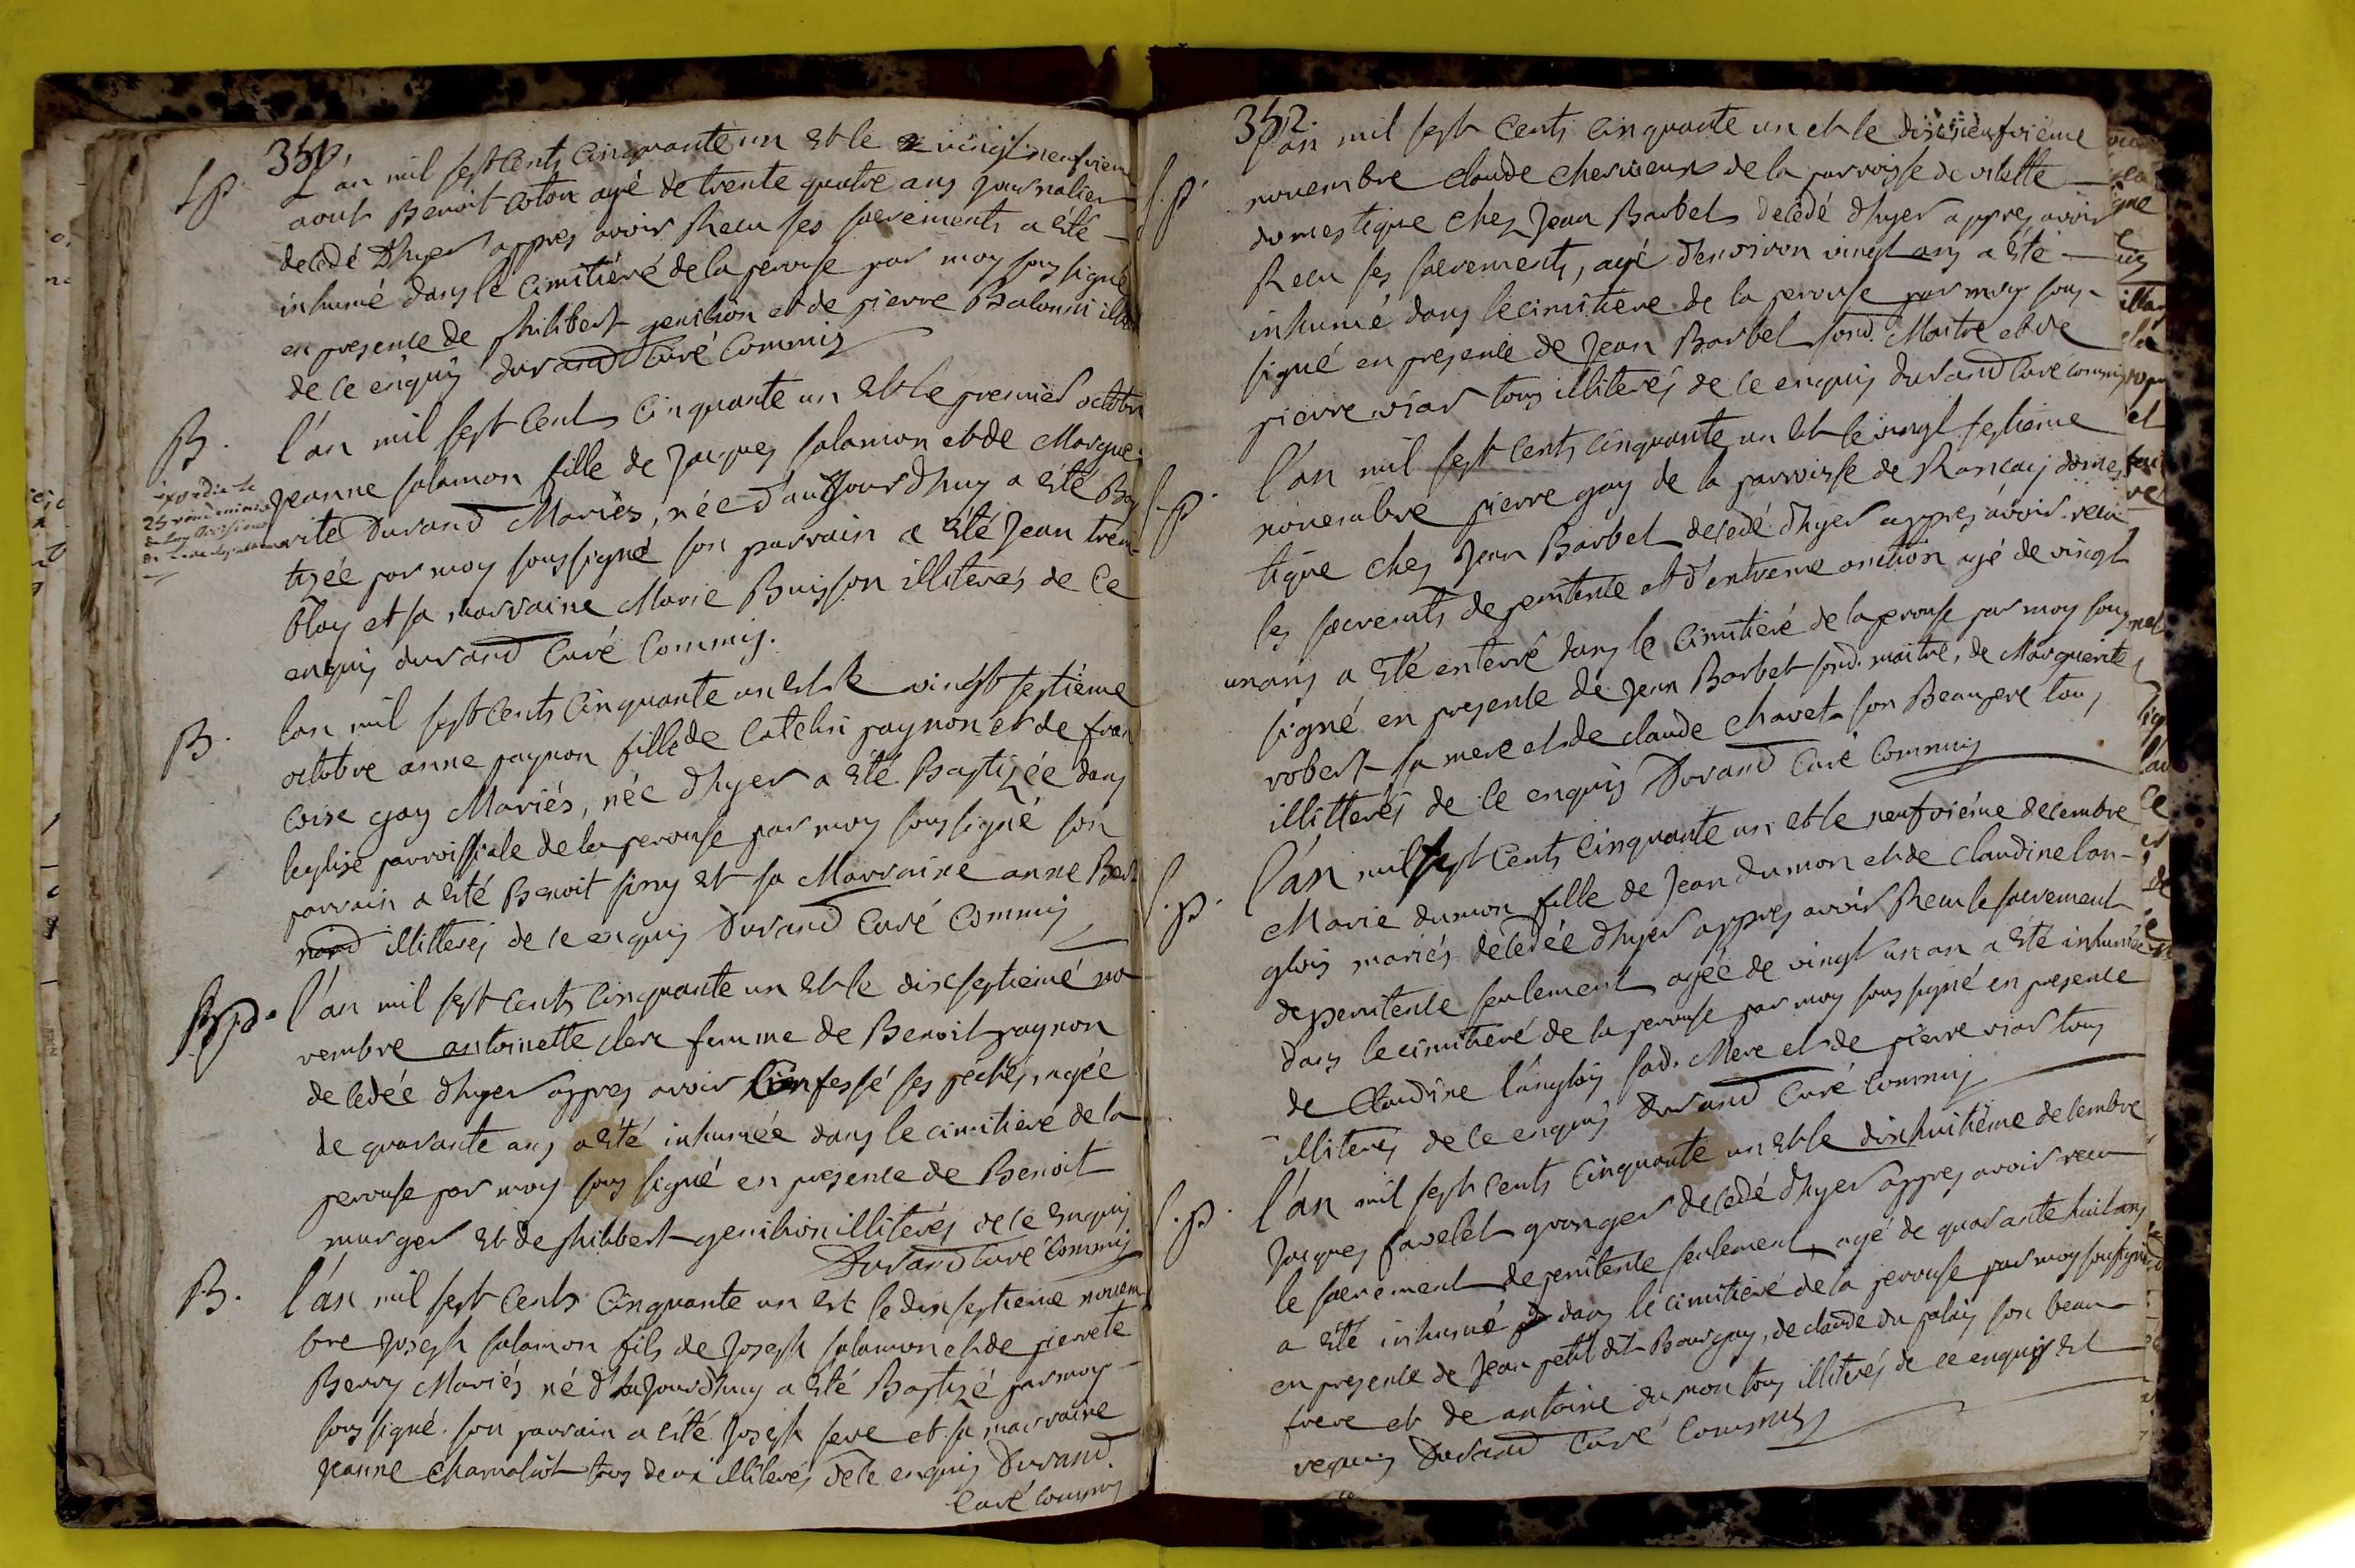 351.
S.p. L'an mil sept Cents Cinquante un et le vingt neufvieme
aout Benoit Coton agé de trente quatre ans journalier
decedé d'hyer appres avoir Receu ses sacrements a été
inhumé dans le Cimitiéré de la perouse par moy sous signé
en presence de philibert genihion et de pierre
de ce enquis durand Curé Commis
B. l'an mil sept Cents Cinquante un et le premier octobre
jeanne salamon fille de jacques salamon et de Margue
rite Durand Mariés, née d'aujourd'huy a été Bap
tizée par moy sous signé son parrain a été jean trem
blay et sa marraine Marie Buisson illiterés de ce
enquis durand Curé Commis.
B. l'an mil sept Cents Cinquante un et le vingt septiéme
octobre anne pagnon fille de Catelin pagnon et de fran
coise gay Mariés, née d'hyer a été Baptizée dans
l'eglise parroissiale de la perouse par moy sous signé son
parrain a été Benoit siny et sa Marraine anne Ber
nard illitterés de ce enquis Durand Curé Commis
S.p. l'an mil sept Cents Cinquante un et le dixseptiemé no
vembre antoinette clere femme de Benoit pagnon
decedée d'hyer appres avoir Confessé ses péchés, agée
de quarante ans a été inhumée dans le cimitiére de la
perouse par moy sous signé en presence de Benoit
murger et de philibert genihion illiterés de ce enquis
Durand Curé Commis
B. l'an mil sept Cents Cinquante un et le dix septieme novem
bre joseph salamon fils de joseph salamon et de pierrete
Berry Mariés né d'aujourd'huy a été Baptizé par moy
sous signé. son parrain a été joseph seve et sa marraine
jeanne Charnolint tous deux illiterés de ce enquis Durand.
Curé Commis
352.
S.p. l'an mil sept Cents Cinquante un et le dixneufvieme
novembre claude chervieux de la parroisse de vilette
domestique chez jean Barbet decedé d'hyer appres avoir
Receu ses sacrements, agé d'environ vingt ans a été
inhumé dans le cimitiere de la perouse par moy sous
signé en presence de jean Barbet sond. Maitre et de
pierre viar tous illiterés de ce enquis durand Curé Commis
S.p. l'an mil sept Cents Cinquante un et le vingt septieme
novembre pierre gay de la parroisse de Rancay domes
tique chez jean Barbet decedé d'hyer appres avoir receu
les sacrements de penitence et d'extreme onction agé de vingt
un ans a été enterré dans le Cimitieré de la perouse par moy sous
signé en presence de jean Barbet sond. maitre, de Marguerite
robert sa mere et de claude chavet son Beaupere tous
illitterés de ce enquis Durand Curé Commis
S.p. l'an mil sept Cents Cinquante un et le neufviéme decembre
Marie dumon fille de jean dumon et de claudine lan
glois mariés decedée d'hyer appres avoir Receu le sacrement
de penitence seulement agée de vingt un an a été inhumée
dans le cimitieré de la perouse par moy sous signé en presence
de Claudine langlois sad. Mere et de pierre viar tous
illiterés de ce enquis Durand Curé Commis
S.p. l'an mil sept Cents Cinquante un et le dixhuitiéme decembre
jacques favelet granger decedé d'hyer appres avoir receu
le sacrement de penitence seulement, agé de quarante huit ans
a été inhumé dans le cimitieré de la perouse par moy soussigné
en presence de jean petit dit Bourgay, de claude du palais son beau
frere et de antoine dumon tous illiterés de ce enquis et
requis Durand Curé Commis